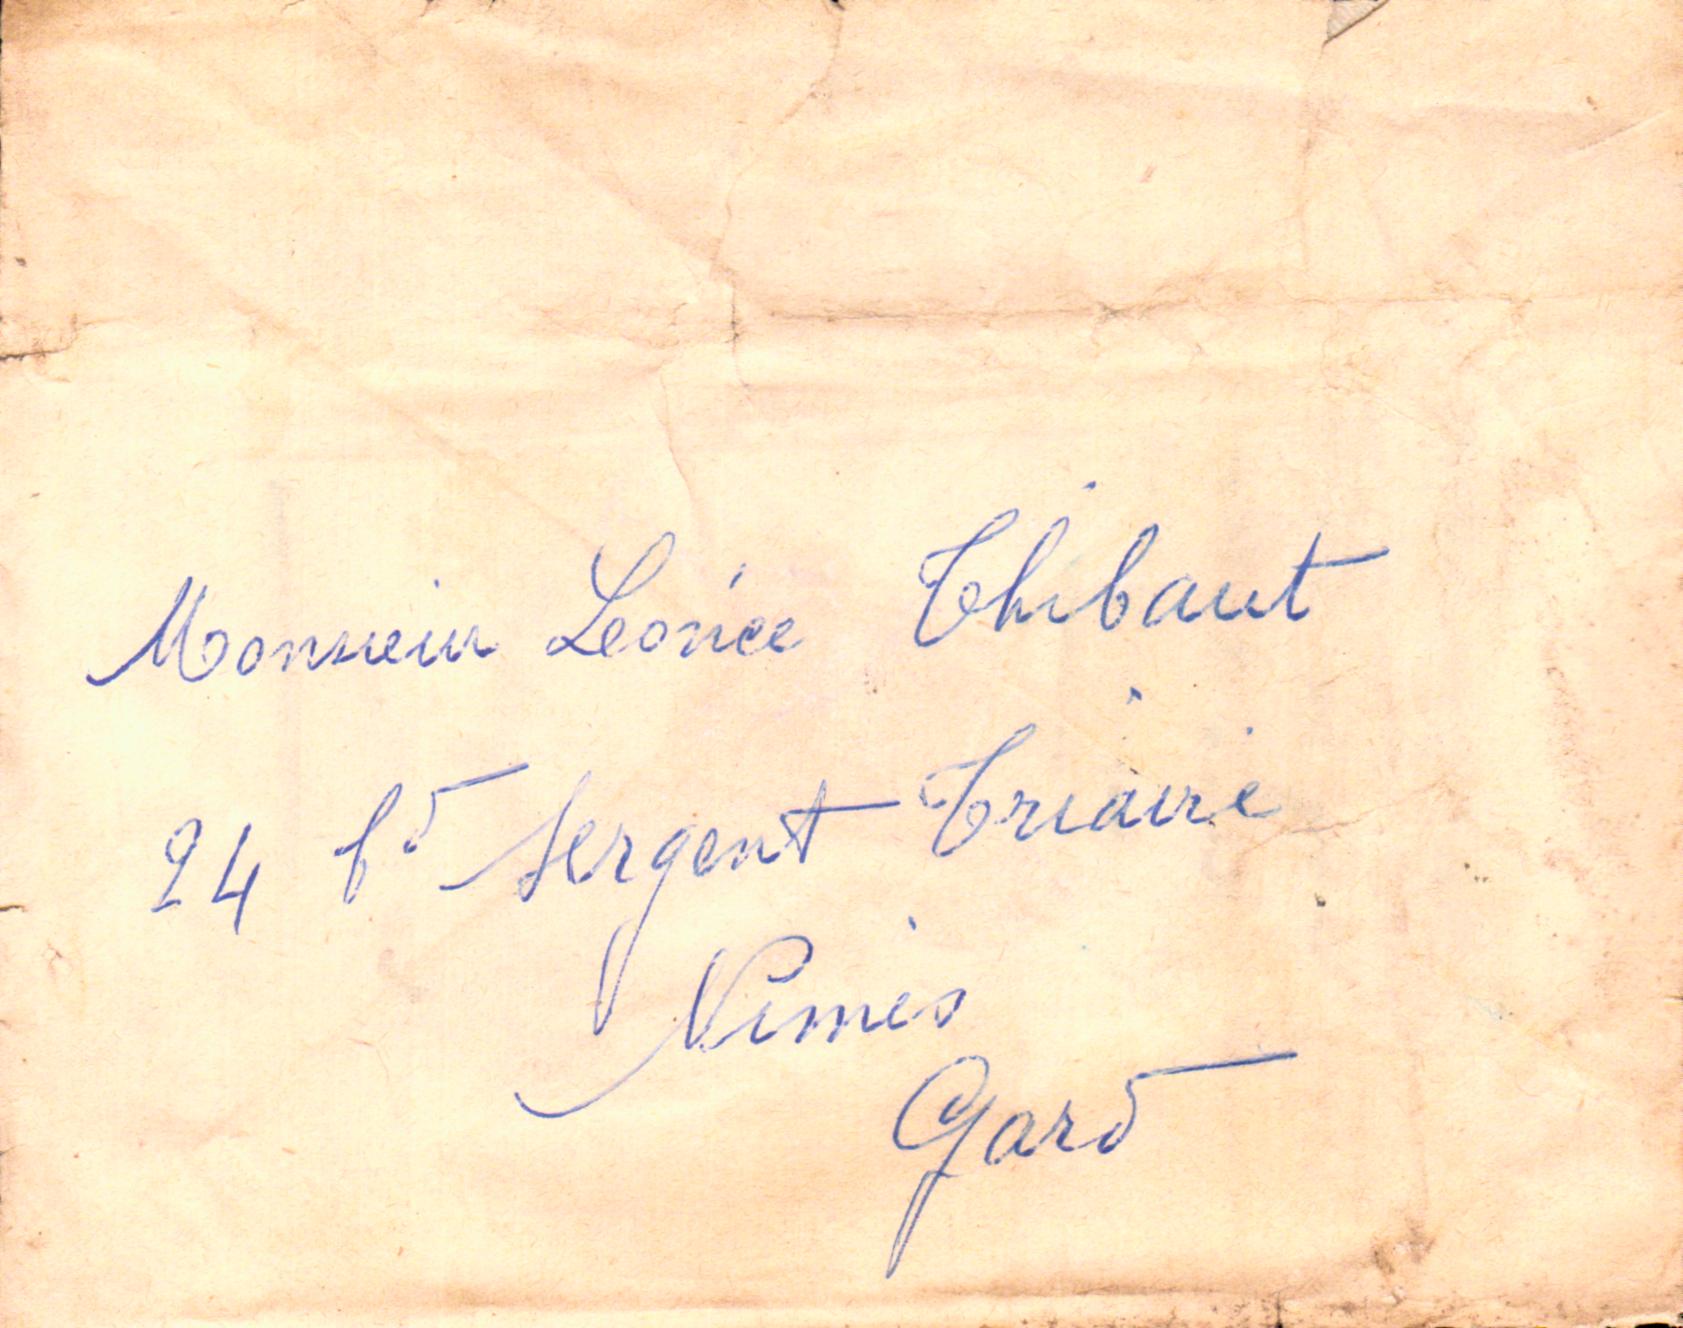 Monsieur Léonce Thibaut
24 bd Sergent Triaire
Nimes
Gard